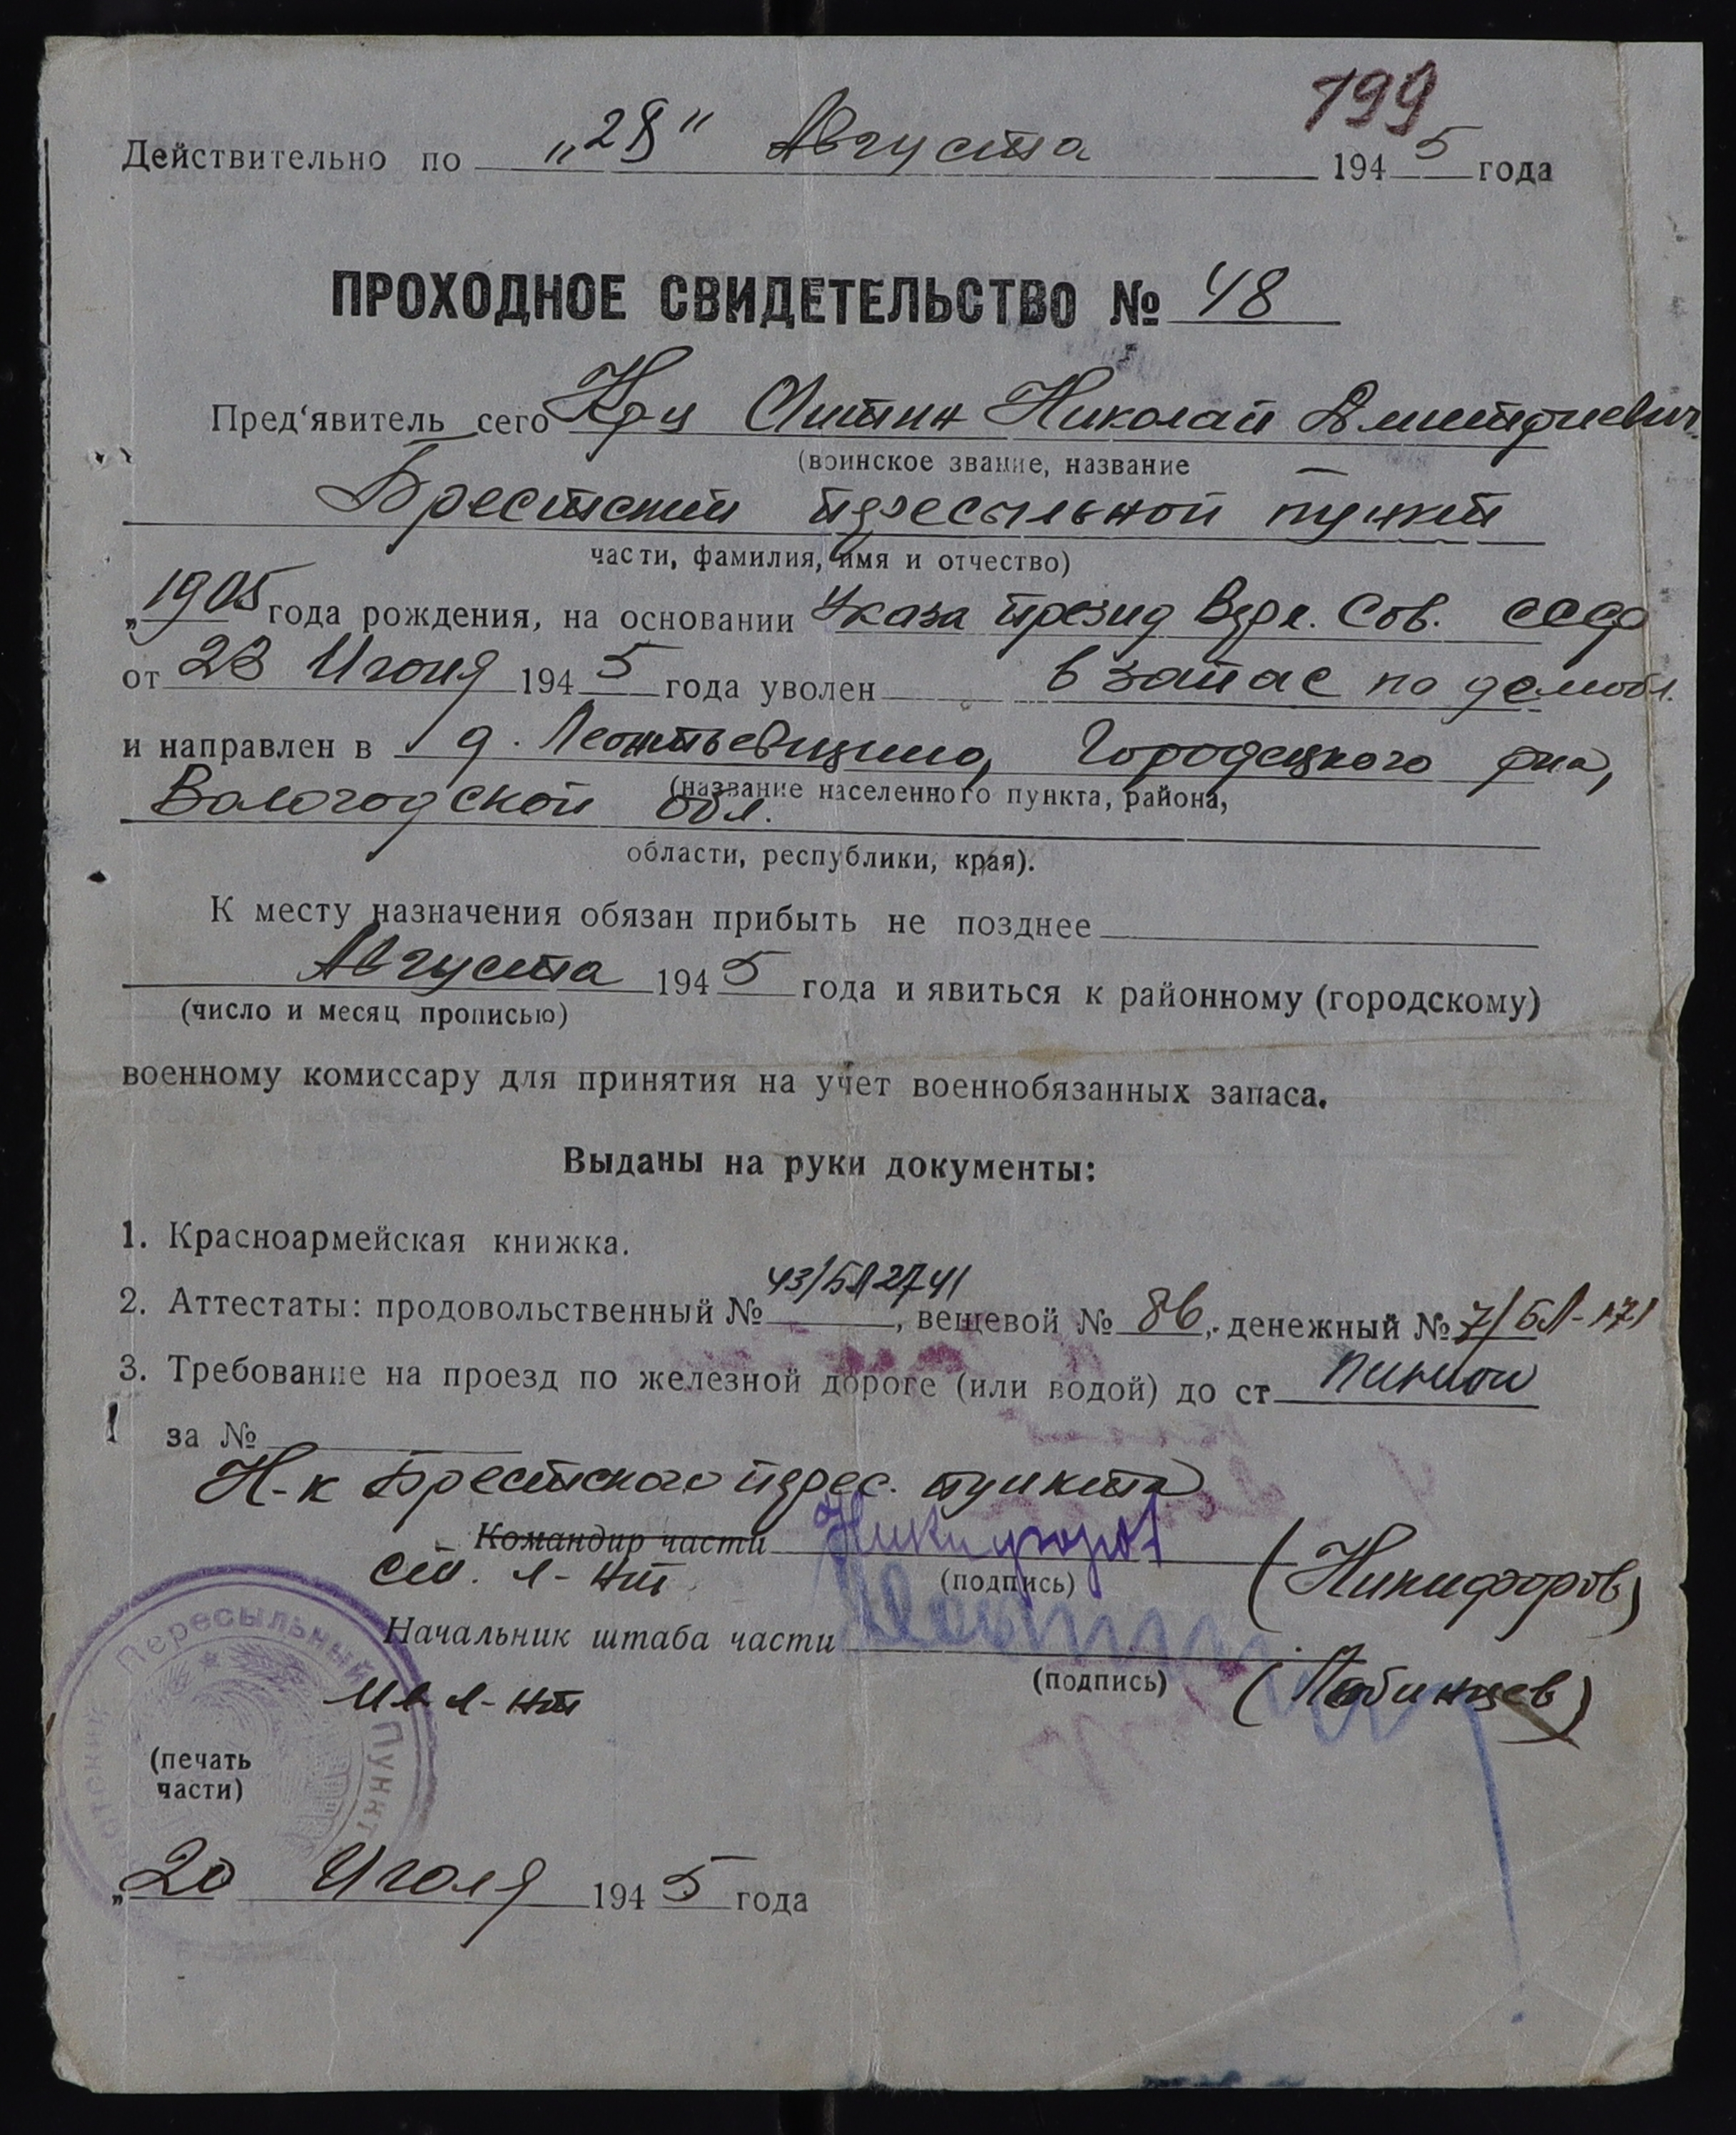 199
Действительно по „28" Августа 1945 года
ПРОХОДНОЕ СВИДЕТЕЛЬСТВО № 48
Пред'явитель сего Кр-ц Николай Дмитриевич
(воинское звание, название
Брестский пересыльной пункт
части, фамилия, имя и отчество)
„1905 года рождения, на основании Указа Презид Верх. Сов. СССР
от 23 Июня 1945 года уволен в запас по демобл.
и направлен в д. Леонтьевщино, Городецкого р-на,
(название населенного пункта, района,
Вологодской обл.
области, республики, края).
К месту назначения обязан прибыть не позднее
Августа 1945 года и явиться к районному (городскому)
(число и месяц прописью)
военному комиссару для принятия на учет военнобязанных запаса.
Выданы на руки документы:
1. Красноармейская книжка.
2. Аттестаты: продовольственный № 43/БЛ2741, вещевой № 86, денежный № 7/БЛ-171
3. Требование на проезд по железной дороге (или водой) до ст
за №
Н-к Брестского перес. пункта
Командир части Никифоров
ст. л-нт (подпись) (Никифоров)
Начальник штаба части
(подпись)
Мл л-нт (Лобинцев)
Пересыльный Пункт
(печать
части)
„20 Июля 1945 года